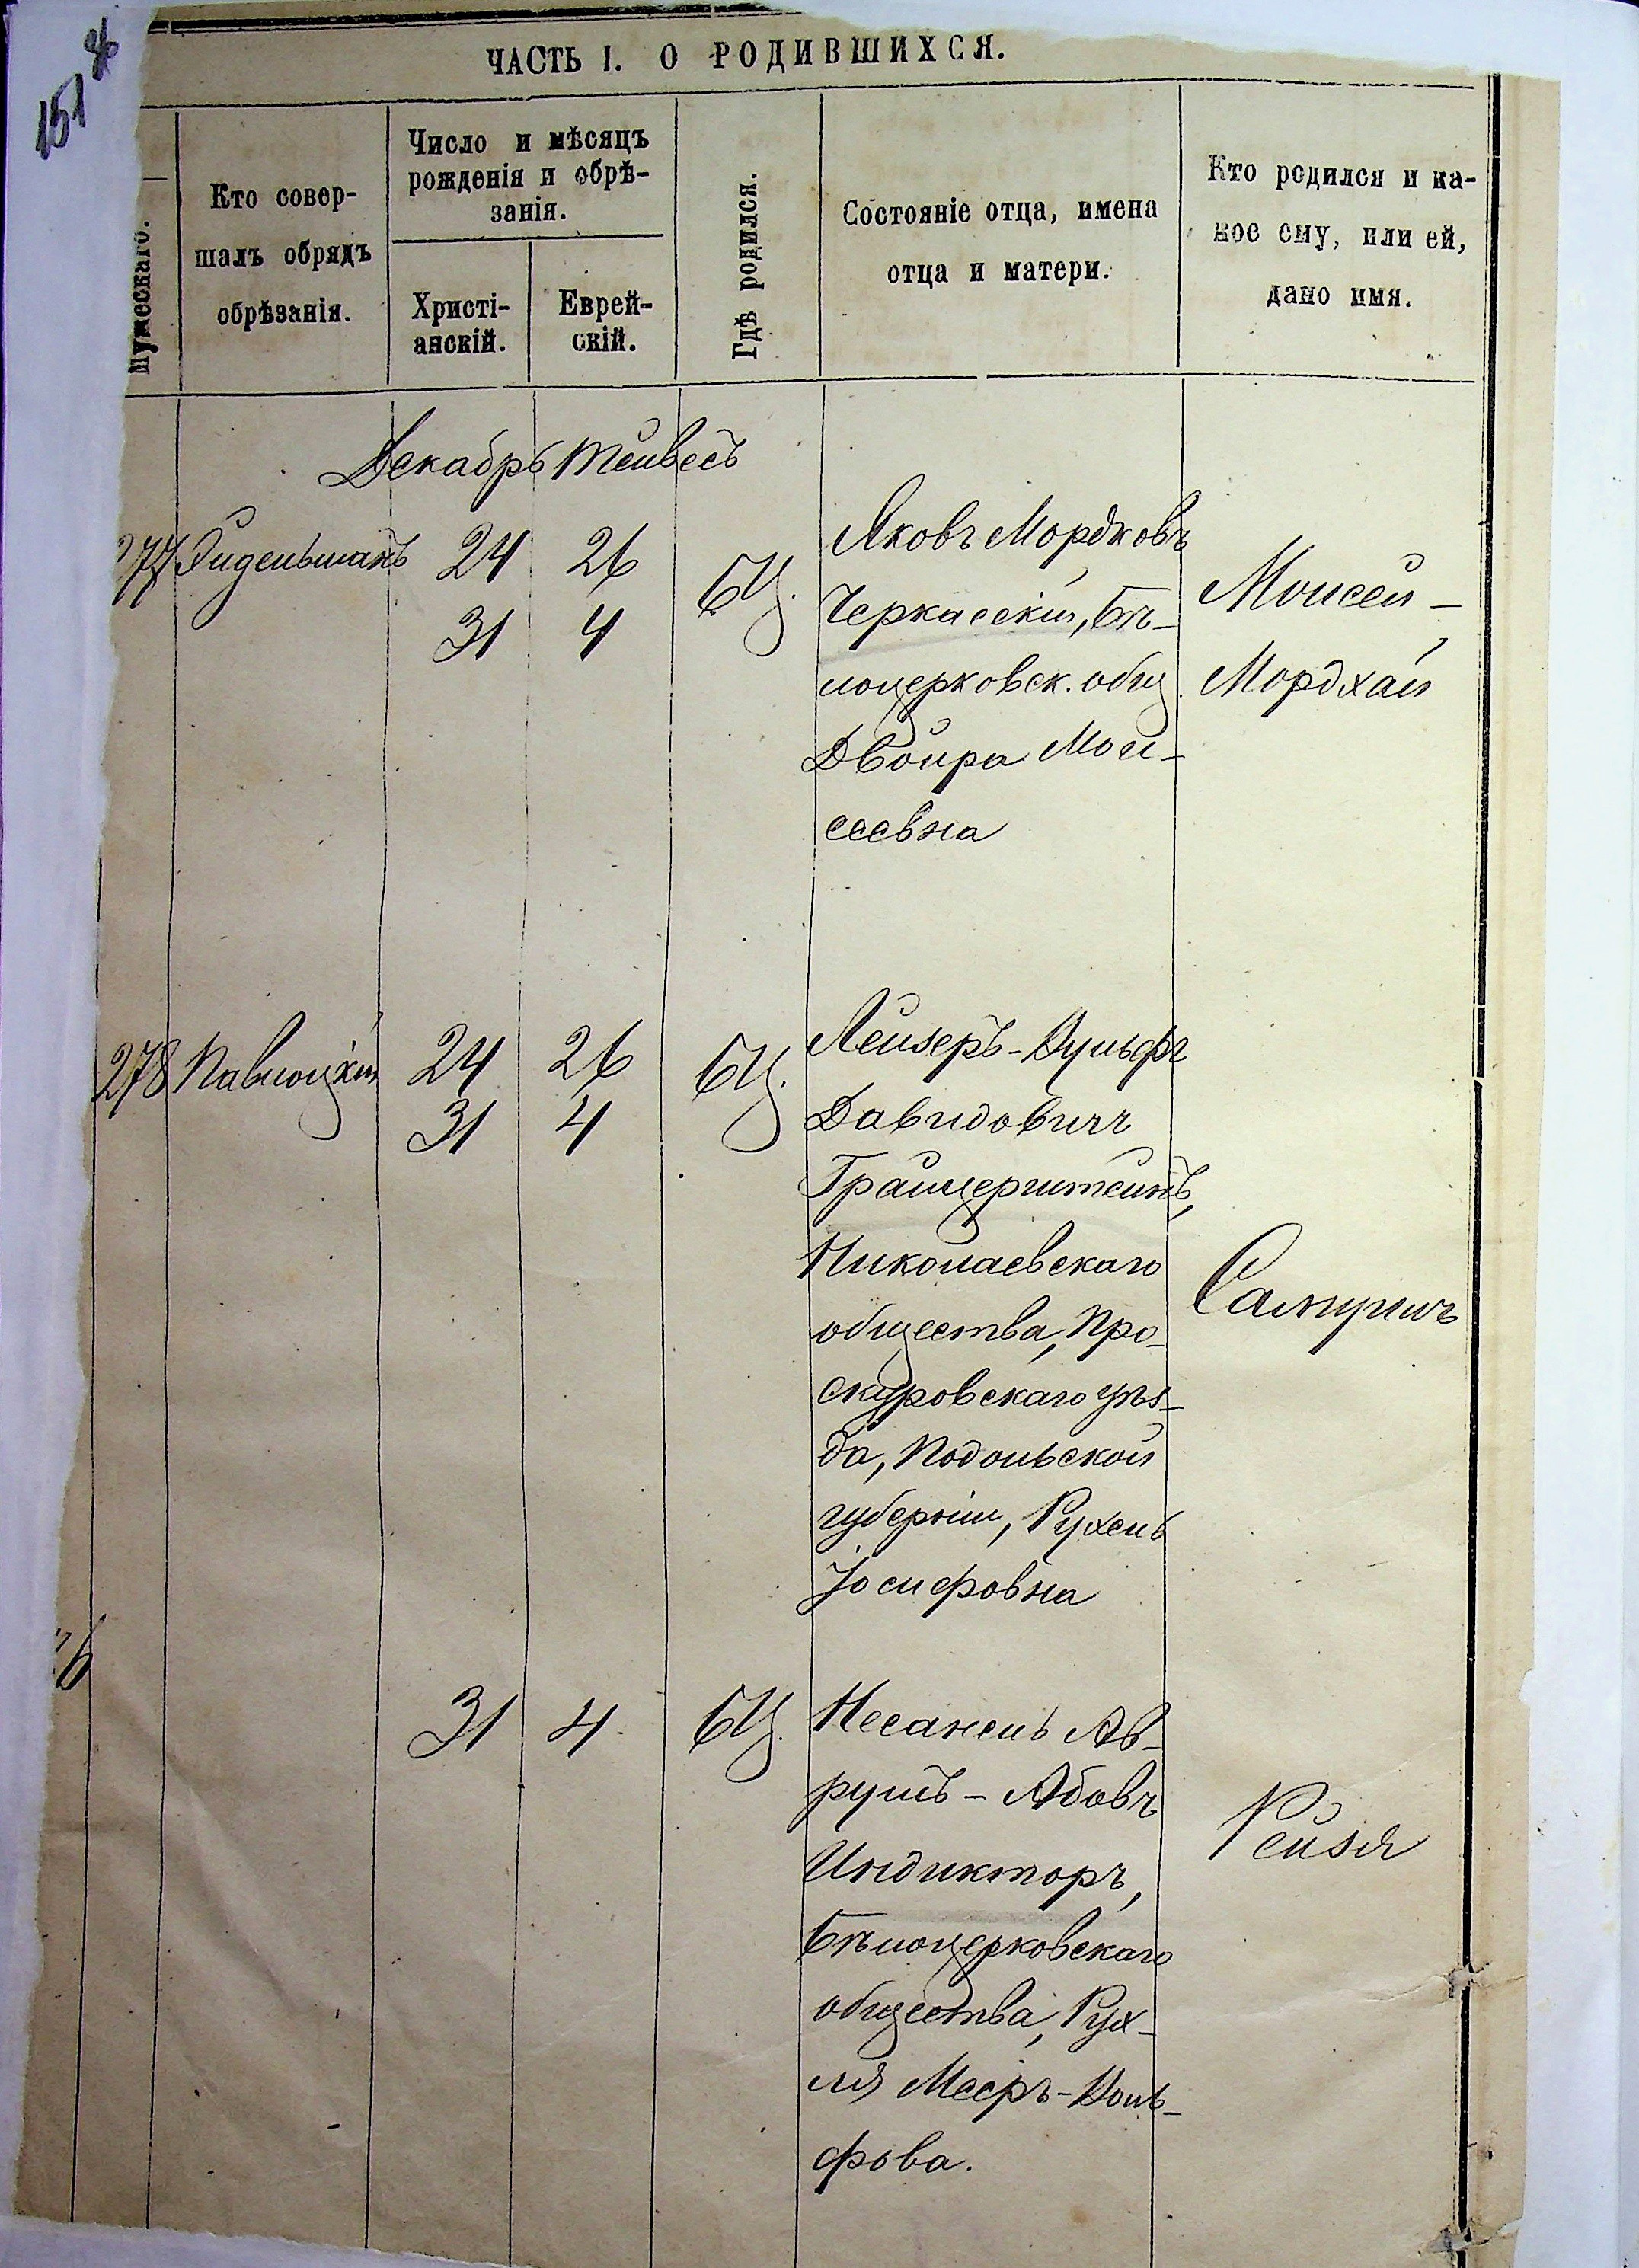 151 об
ЧАСТЬ I. О РОДИВШИХСЯ.
Мужескаго.
Кто совер-
шалъ обрядъ
обрѣзанія.
Число и мѣсяцъ
рожденія и обрѣ-
занія.
Христі-
анскій.
Еврей-
скій.
Гдѣ родился.
Состояніе отца, имена
отца и матери.
Кто родился и ка-
кое ему, или ей,
дано имя.
Декабрь Тейвесъ
277
24 26
31 4
БЦ.
Яковъ Мордковъ
Черкасскій, Бѣ-
лоцерковск. общ.
Двойра Мои-
сеевна
Моисей-
Мордхай
278 Павлоцкій
24 26
31 4
БЦ.
Лейзеръ-Вульфъ
Давидовичъ
Грайцерштейнъ,
Николаевскаго
общества, Про-
скуровскаго уѣз-
да, Подольской
губерніи, Рухель
Іосифовна
Самуилъ
31 4
БЦ.
Несанель Ав-
румъ-Абовъ
Индикторъ,
Бѣлоцерковскаго
общества, Рух-
ля Мееръ-Воль-
фова.
Рейзя